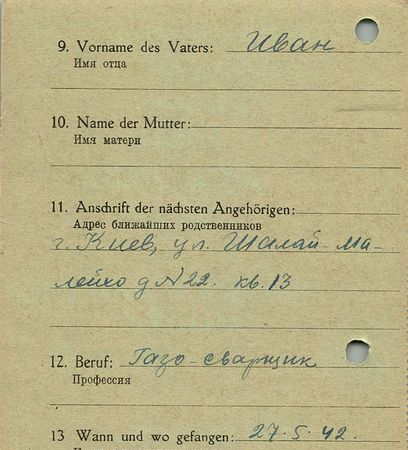 9. Vorname des Vaters: Иван
Имя отца
10. Name der Mutter:
Имя матери
11. Anschrift der nächsten Angehörigen:
Адрес ближайших родственников
г. Киев, ул. Шалай-ма-
лейхо д N 22. кв. 13
12. Beruf: Газо-сварщик
Профессия
13 Wann und wo gefangen: 27.5.42.